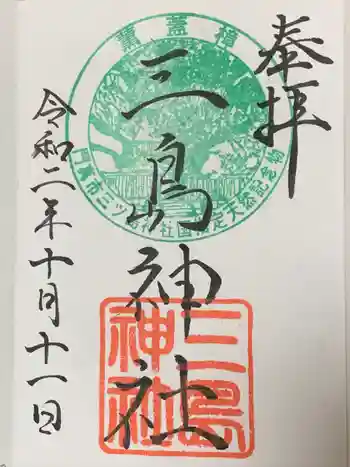 奉拝
三島神社
令和二年十月十一日
薫蓋樟
門真市三ツ島神社国指定天然記念物
三島
神社